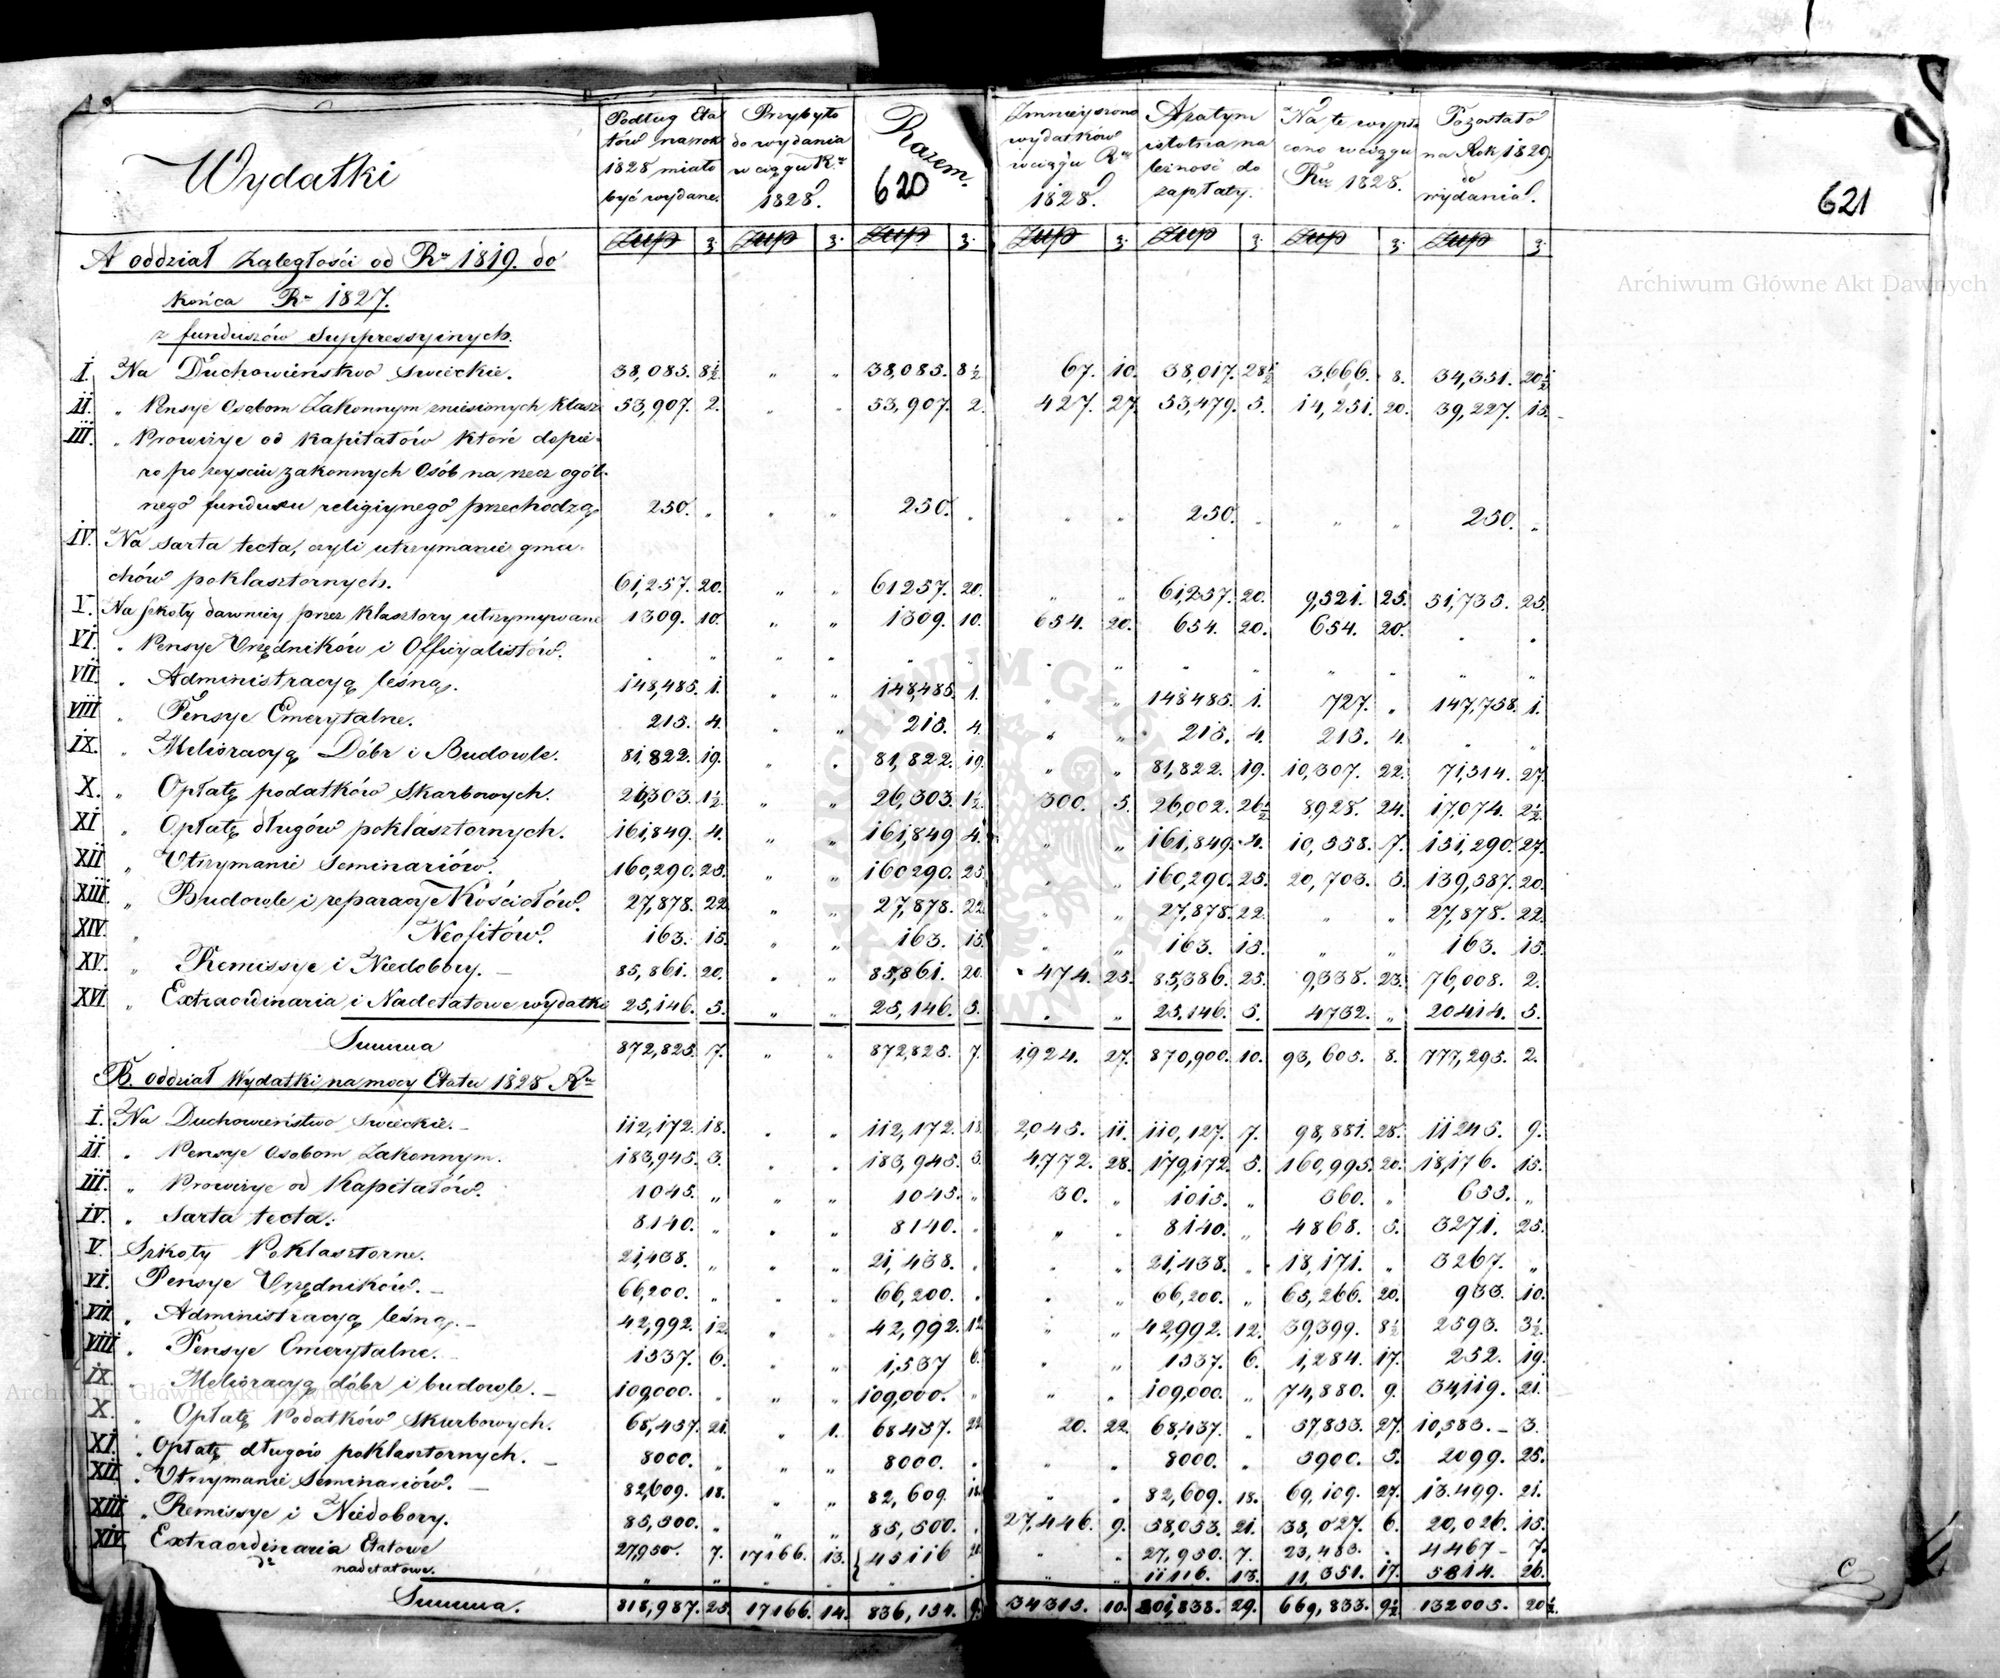 Wydatki
Podług Eta
tów na rok
1828 miało
być wydane.
Przybyło
do wydania
w ciągu Ru
1828.
Razem.
620
Zmnieyszono
wydatków
w ciągu Ru
1828.
A zatym
istotna na
leżność do
zapłaty.
Na te wypła
cono w ciągu
Ru 1828.
Pozostało
na Rok 1829.
do
wydania.
621
Złp g. Złp g. Złp g. Złp g. Złp g. Złp g. Złp g.
A oddział Zaległości od Ru 1819. do
końca Ru 1827.
z funduszów Suppressyinych.
I. Na Duchowieństwo Swieckie. 38,085. 8½ " " 38,085. 8½ 67. 10. 38,017. 28½ 3,666. 8. 34,351. 20½
II. " Pensye Osobom Zakonnym zniesionych Klasz 53,907. 2. " " 53,907. 2. 427. 27. 53,479. 5. 14,251. 20. 39,227. 15.
III. " Prowizye od kapitałów które dopie-
ro po zeysciu zakonnych Osób na rzecz ogól-
nego funduszu religiynego przechodzą 250. " " " 250. " " " 250. " " " 250. "
IV. Na Sarta tecta, czyli utrzymanie gma-
chów poklasztornych. 61,257. 20. " " 61257. 20. " " 61,257. 20. 9,521. 25. 51,735. 25.
V. Na szkoły dawniey przez klasztory utrzymywane 1309. 10. " " 1309. 10. 654. 20. 654. 20. 654. 20. " "
VI. " Pensye Urzędników i Officyalistów. " " " " " " " " " " " " " "
VII. " Administracyą leśną. 148,485. 1. " " 148,485. 1. " " 148485. 1. 727. " 147,758. 1.
VIII " Pensye Emerytalne. 215. 4. " " 215. 4. " " 215. 4. 215. 4. " "
IX. " Melioracyą Dóbr i Budowle. 81,822. 19. " " 81,822. 19. " " 81,822. 19. 10,307. 22. 71,514. 27.
X. " Opłatę podatków Skarbowych. 26,303. 1½ " " 26,303. 1½ 300. 5. 26,002. 26½ 8,928. 24. 17,074. 2½
XI " Opłatę długów poklasztornych. 161,849. 4. " " 161,849 4. " " 161,849. 4. 10,558. 7. 151,290. 27.
XII " Utrzymanie Seminariów. 160,290. 25. " " 160290. 25. " " 160,290. 25. 20,703. 5. 139,587. 20.
XIII. " Budowle i reparacye Kościołów. 27,878. 22. " " 27,878. 22. " " 27,878. 22. " " 27,878. 22.
XIV. " Neofitów. 163. 15. " " 163. 15. " " 163. 15. " " 163. 15.
XV. " Remissye i Niedobory. 85,861. 20. " " 85,861. 20. 474. 25. 85,386. 25. 9,338. 23. 76,008. 2.
XVI " Extraordinaria i Nadetatowe wydatki 25,146. 5. " " 25,146. 5. " " 25,146. 5. 4732. " 20414. 5.
Summa 872,825. 7. " " 872,825. 7. 1,924. 27. 870,900. 10. 93,605. 8. 777,295. 2.
B. oddział Wydatki na mocy Etatu 1828 Ru
I. Na Duchowieństwo Swieckie. 112,172. 18. " " 112,172. 18. 2,045. 11. 110,127. 7. 98,881. 28. 11245. 9.
II " Pensye Osobom Zakonnym. 183,945. 3. " " 183,945. 3. 4,772. 28. 179,172. 5. 160,995. 20. 18,176. 15.
III. " Prowizye od Kapitałów. 1045. " " " 1045. " 30. " 1015. " 360. " 655. "
IV. " Sarta tecta. 8140. " " " 8140. " " " 8140. " 4868. 5. 3271. 25.
V. Szkoły Poklasztorne. 21,438. " " " 21,438. " " " 21,438. " 18,171. " 3267. "
VI. Pensye Urzędników. 66,200. " " " 66,200. " " " 66,200. " 65,266. 20. 933. 10.
VII. " Administracyą leśną. 42,992. 12. " " 42,992. 12 " " 42,992. 12. 39,399. 8½ 2593. 3½
VIII " Pensye Emerytalne. 1537. 6. " " 1,537 6. " " 1537. 6. 1,284. 17. 252. 19.
IX. " Melioracyą dóbr i budowle. 109,000. " " " 109,000. " " " 109,000. " 74,880. 9. 34,119. 21.
X. " Opłatę Podatków Skarbowych. 68,457. 21. " 1. 68457. 22 20. 22. 68,437. " 57,853. 27. 10,583. 3.
XI. " Opłatę długów poklasztornych. 8000. " " " 8000. " " " 8000. " 5900. 5. 2099. 25.
XII " Utrzymanie Seminariów. 82,609. 18. " " 82,609 18. " " 82,609. 18. 69,109. 27. 13.499. 21.
XIII " Remissye i Niedobory. 85,500. " " " 85,500. " 27,446. 9. 58,053. 21. 38,027. 6. 20,026. 15.
XIV. Extraordinaria Etatowe 27,950. 7. 17166. 13. 45116 20 " " 27,950. 7. 23,483. " 4467 7.
do nadetatowe. " " " " " " 11116. 13. 11,351. 17. 5814. 26.
Summa. 818,987. 25. 17166. 14. 836,154. 9. 34315. 10. 801,838. 29. 669,833. 9½ 132005. 20½
Archiwum Główne Akt Dawnych
Archiwum Główne Akt Dawnych